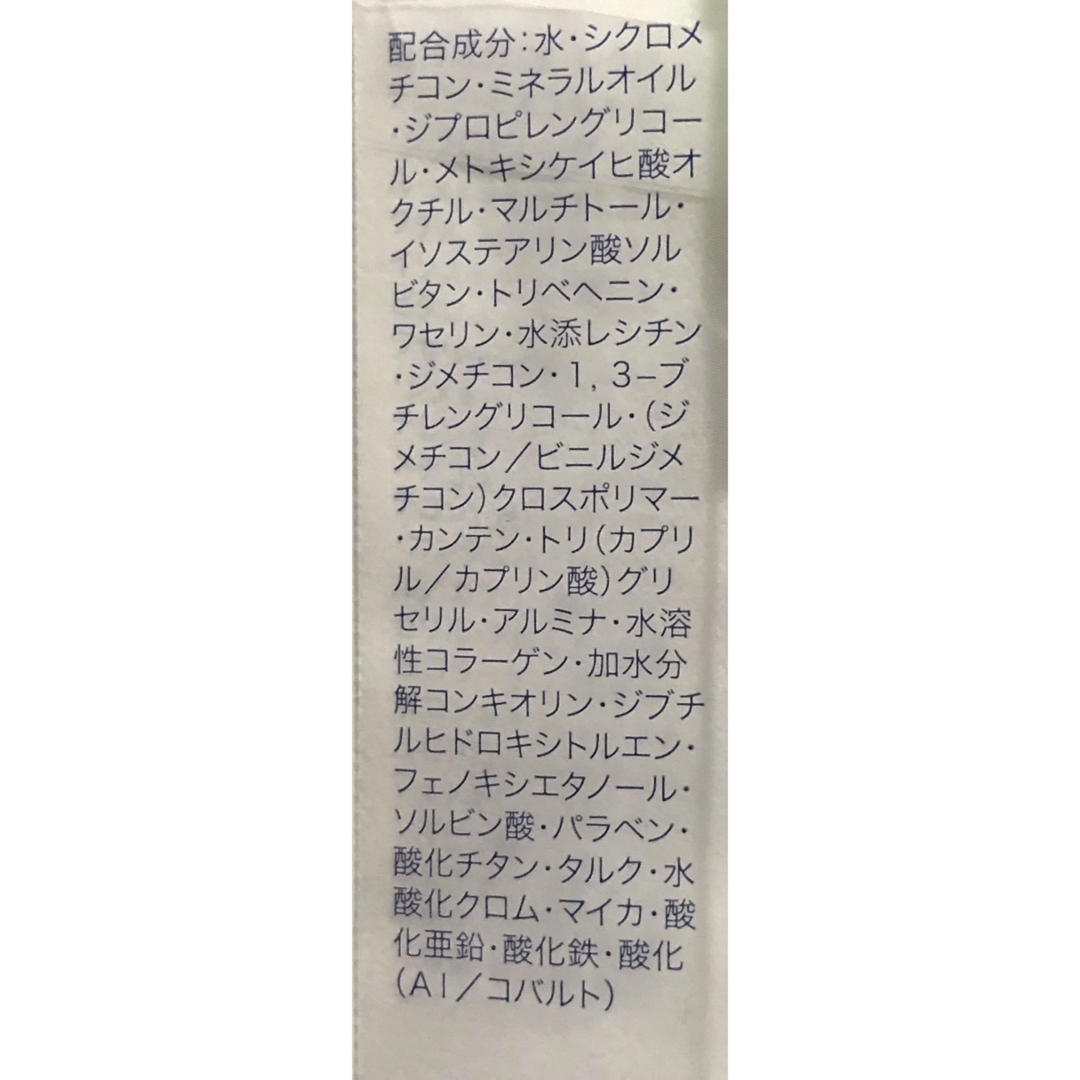 配合成分:水・シクロメ
チコン・ミネラルオイル
・ジプロピレングリコー
ル・メトキシケイヒ酸オ
クチル・マルチトール・
イソステアリン酸ソル
ビタン・トリベヘニン・
ワセリン・水添レシチン
・ジメチコン・1,3−ブ
チレングリコール・(ジ
メチコン/ビニルジメ
チコン)クロスポリマー
・カンテン・トリ(カプリ
ル/カプリン酸)グリ
セリル・アルミナ・水溶
性コラーゲン・加水分
解コンキオリン・ジブチ
ルヒドロキシトルエン・
フェノキシエタノール・
ソルビン酸・パラベン・
酸化チタン・タルク・水
酸化クロム・マイカ・酸
化亜鉛・酸化鉄・酸化
(Al/コバルト)